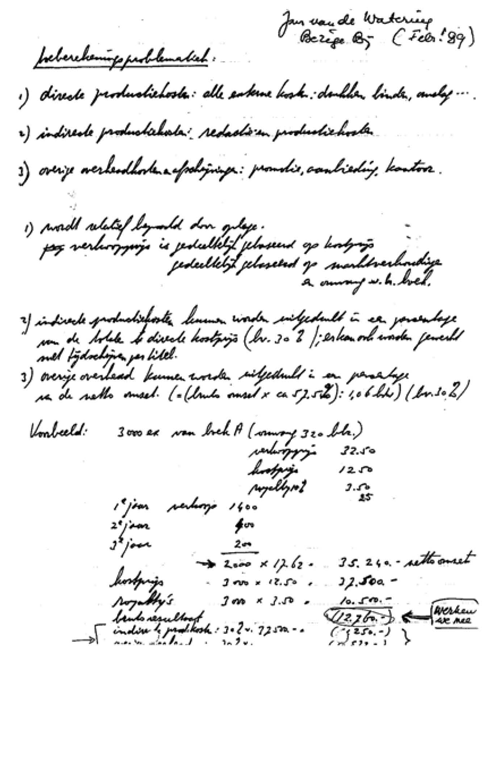 Jan van de Watering
Bezige Bij (Febr. '89)
toeberekeningsproblematiek:
1) directe productiekosten: alle externe kosten: drukken, binden, omslag ...
2) indirecte productiekosten: redactie en productiekosten
3) overige overheadkosten en afschrijvingen: promotie, aanbieding, kantoor.
1) wordt relatief bepaald door oplage.
verkoopprijs is gedeeltelijk gebaseerd op kostprijs
gedeeltelijk gebaseerd op marktverhoudingen
en omvang v.h. boek.
2) indirecte productiekosten kunnen worden uitgedrukt in een percentage
van de totale directe kostprijs (bv. 30%); er kan ook worden gewerkt
met tijdschrijven per titel.
3) overige overhead kunnen worden uitgedrukt in een percentage
van de netto omzet. (= (bruto omzet x ca 57,5%): 1,06 btw) (bv. 30%)
Voorbeeld: 3000 ex van boek A (omvang 320 blz.)
verkoopprijs 32.50
kostprijs 12.50
royalty 10% 3.50
25
1e jaar verkoop 1400
2e jaar 400
3e jaar 200
→ 2000 x 17.62 = 35.240.- netto omzet
kostprijs 3000 x 12.50 = 37.500.-
royalty's 3000 x 3.50 = 10.500.-
bruto resultaat (12.760.-) ← werken we mee
indirecte prodkosten: 30% v. 37500.- =